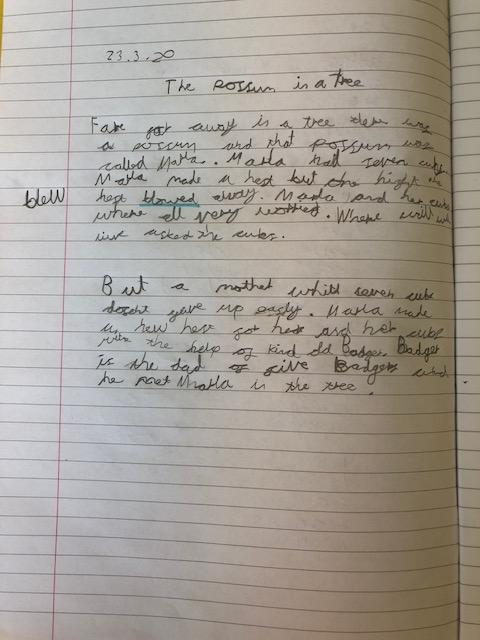 23.3.20
The possum in a tree
Fare far away in a tree there was
a possum and that possum was
called Marla. Marla had seven cubs.
Marla made a nest but one night the
blew
nest blowed away. Marla and her cubs
where all very worried. Where will we
live asked the cubs.
But a mother whith seven cubs
dosent gave up easly. Marla made
a new nest for here and her cubs
with the help of kind old Badger. Badger
is the dad of five Badgers and
he met Marla in the tree.